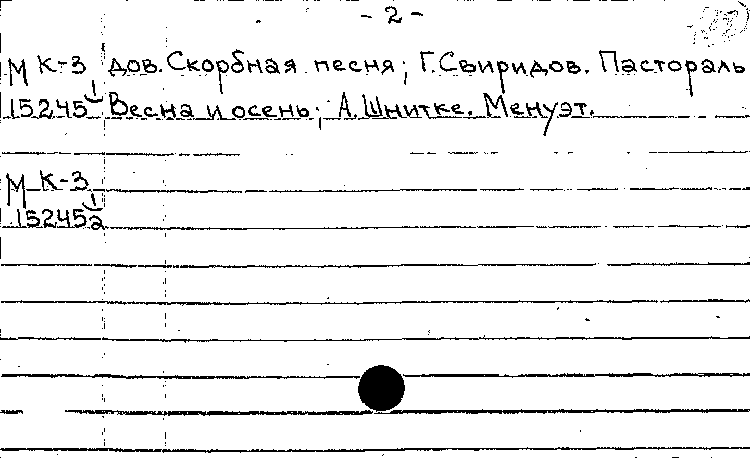 - 2 -
М К-3 дов. Скорбная песня; Г. Свиридов. Пастораль
15245 Весна и осень; А. Шнитке. Менуэт.
М К-3
15245а